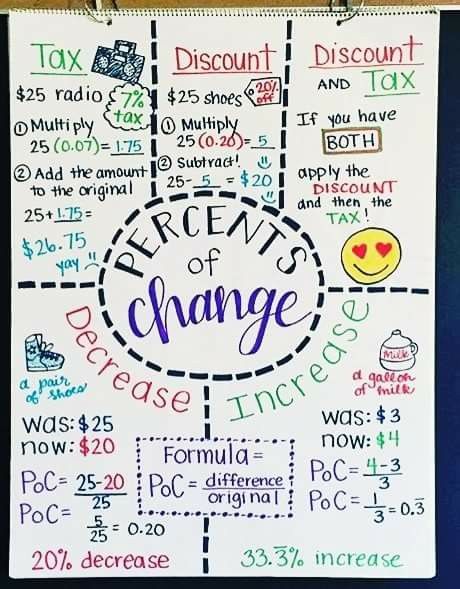 Tax
$25 radio
7%
tax
① Multiply
25 (0.07) = 1.75
② Add the amount
to the original
25 + 1.75 =
$26.75
yay
Discount
$25 shoes
20%
off
① Multiply
25 (0.20) = 5
② Subtract!
25 - 5 = $20
Discount
AND Tax
If you have
BOTH
apply the
DISCOUNT
and then the
TAX!
PERCENTS
of
change
Decrease
a pair
of shoes
was: $25
now: $20
PoC = 25-20
25
PoC =
5
25 = 0.20
20% decrease
Formula =
PoC = difference
original
Increase
Milk
a gallon
of milk
was: $3
now: $4
PoC = 4-3
3
PoC = 1
3 = 0.3̅
33.3̅% increase